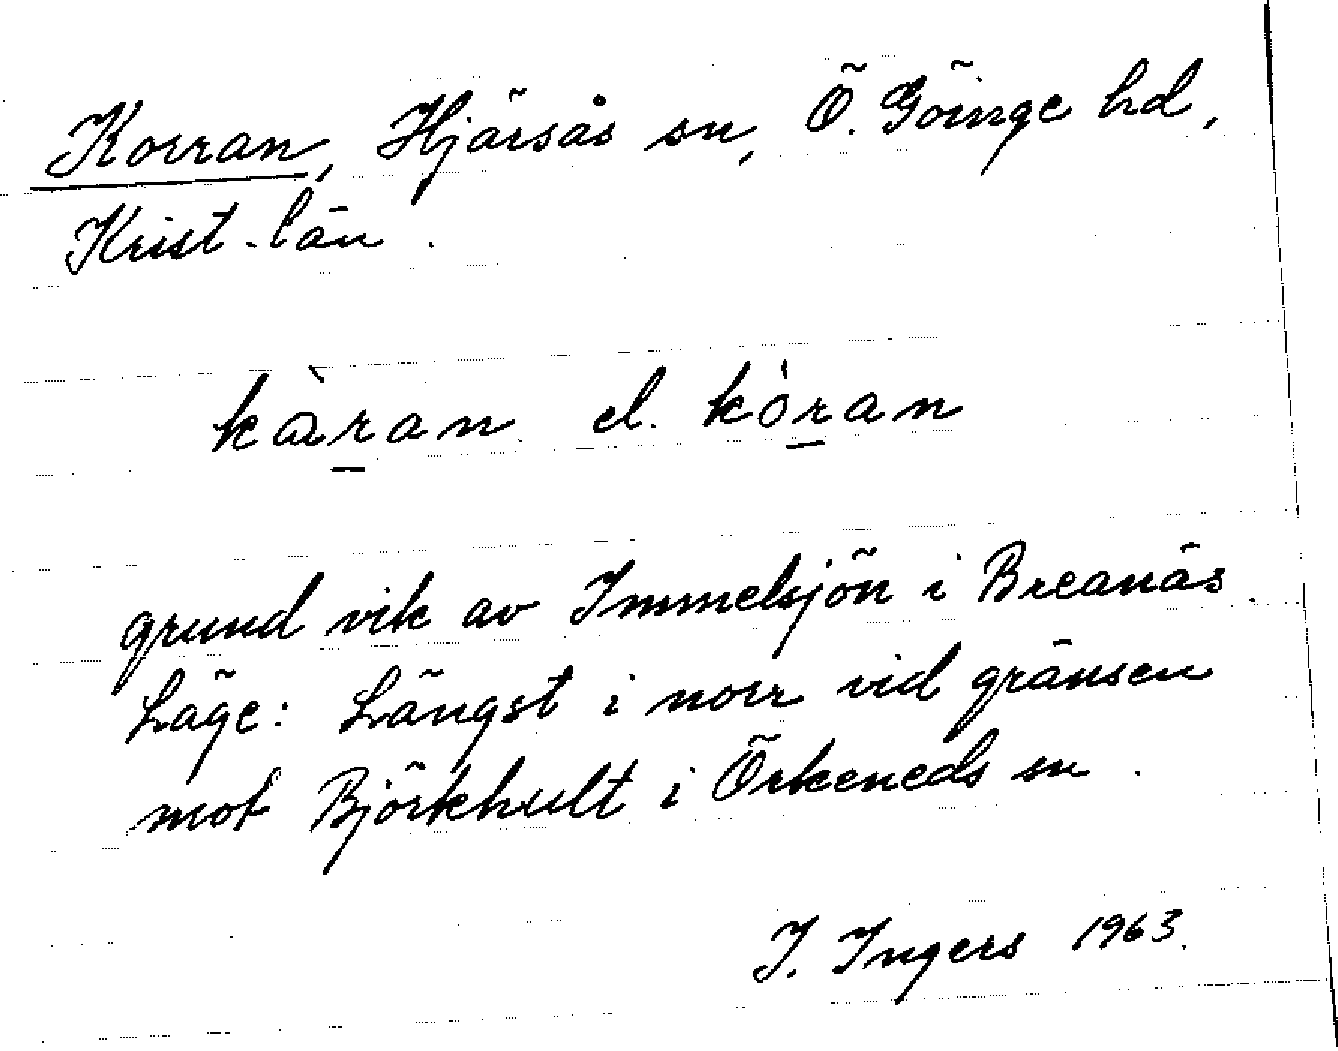 Korran, Hjärsås sn, Ö. Göinge hd,
Krist-län.
kàran el. kòran
grund vik av Immelsjön i Breanäs.
Läge: Längst i norr vid gränsen
mot Björkhult i Örkeneds sn.
I. Ingers 1963.